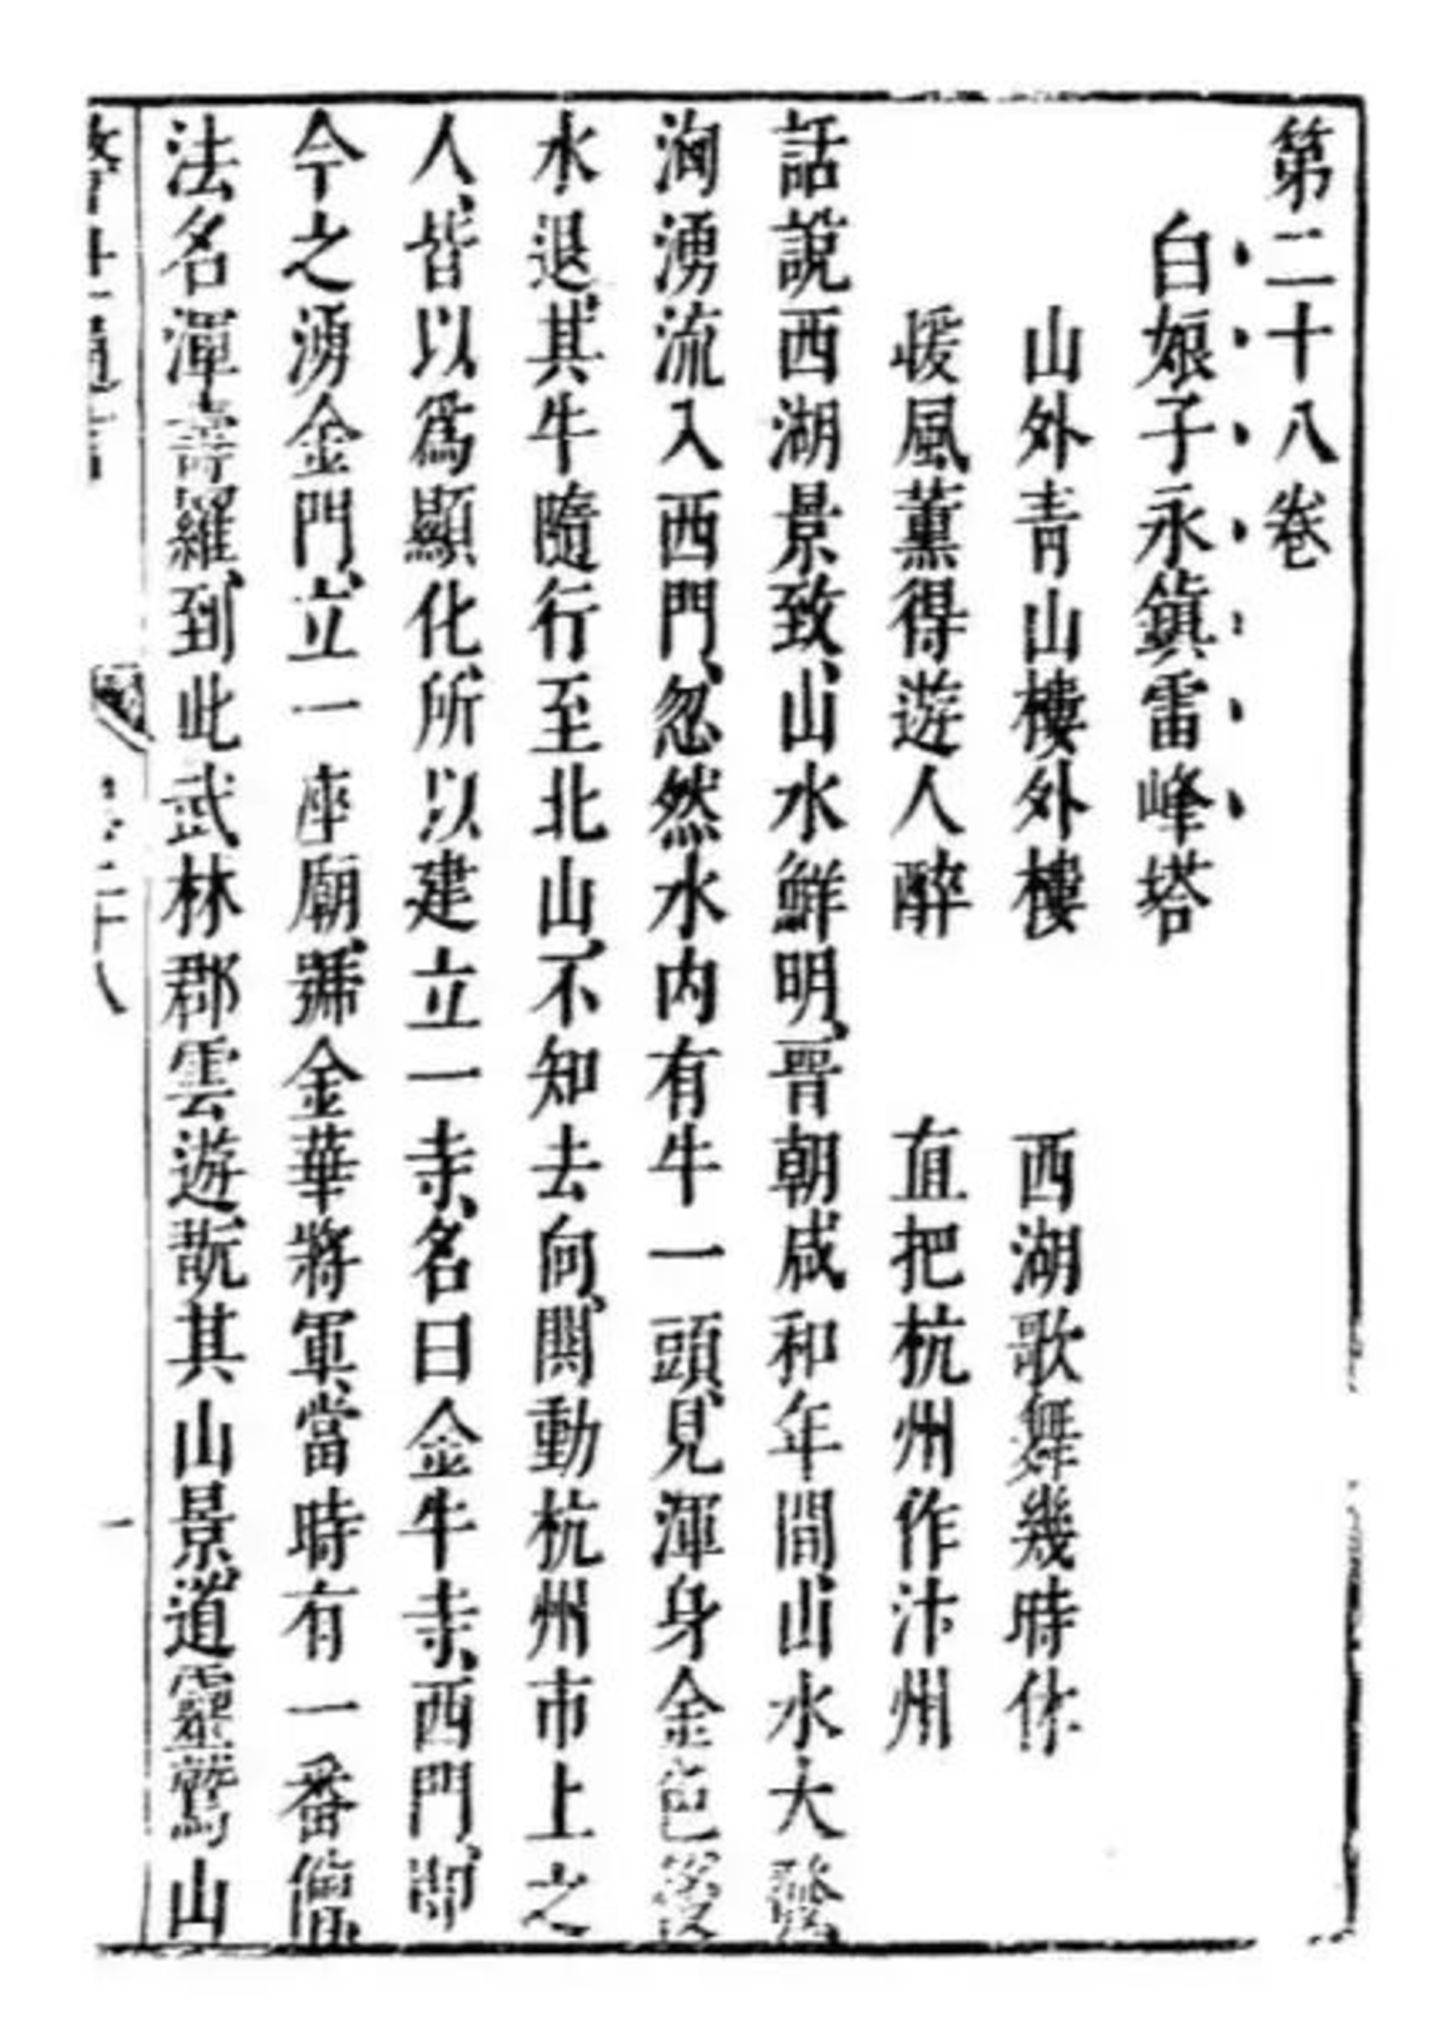 第二十八卷
白娘子永鎮雷峰塔
山外青山樓外樓　西湖歌舞幾時休
煖風薰得遊人醉　直把杭州作汴州
話說西湖景致、山水鮮明、晋朝咸和年間、山水大發
洶湧流入西門、忽然水内有牛一頭、見渾身金色後
水退、其牛隨行至北山、不知去向、閧動杭州市上之
人、皆以爲顯化、所以建立一寺、名曰金牛寺、西門、即
今之湧金門、立一座廟、號金華將軍、當時有一番僧
法名渾壽羅、到此武林郡雲遊、翫其山景、道靈鷲山
二十八
一